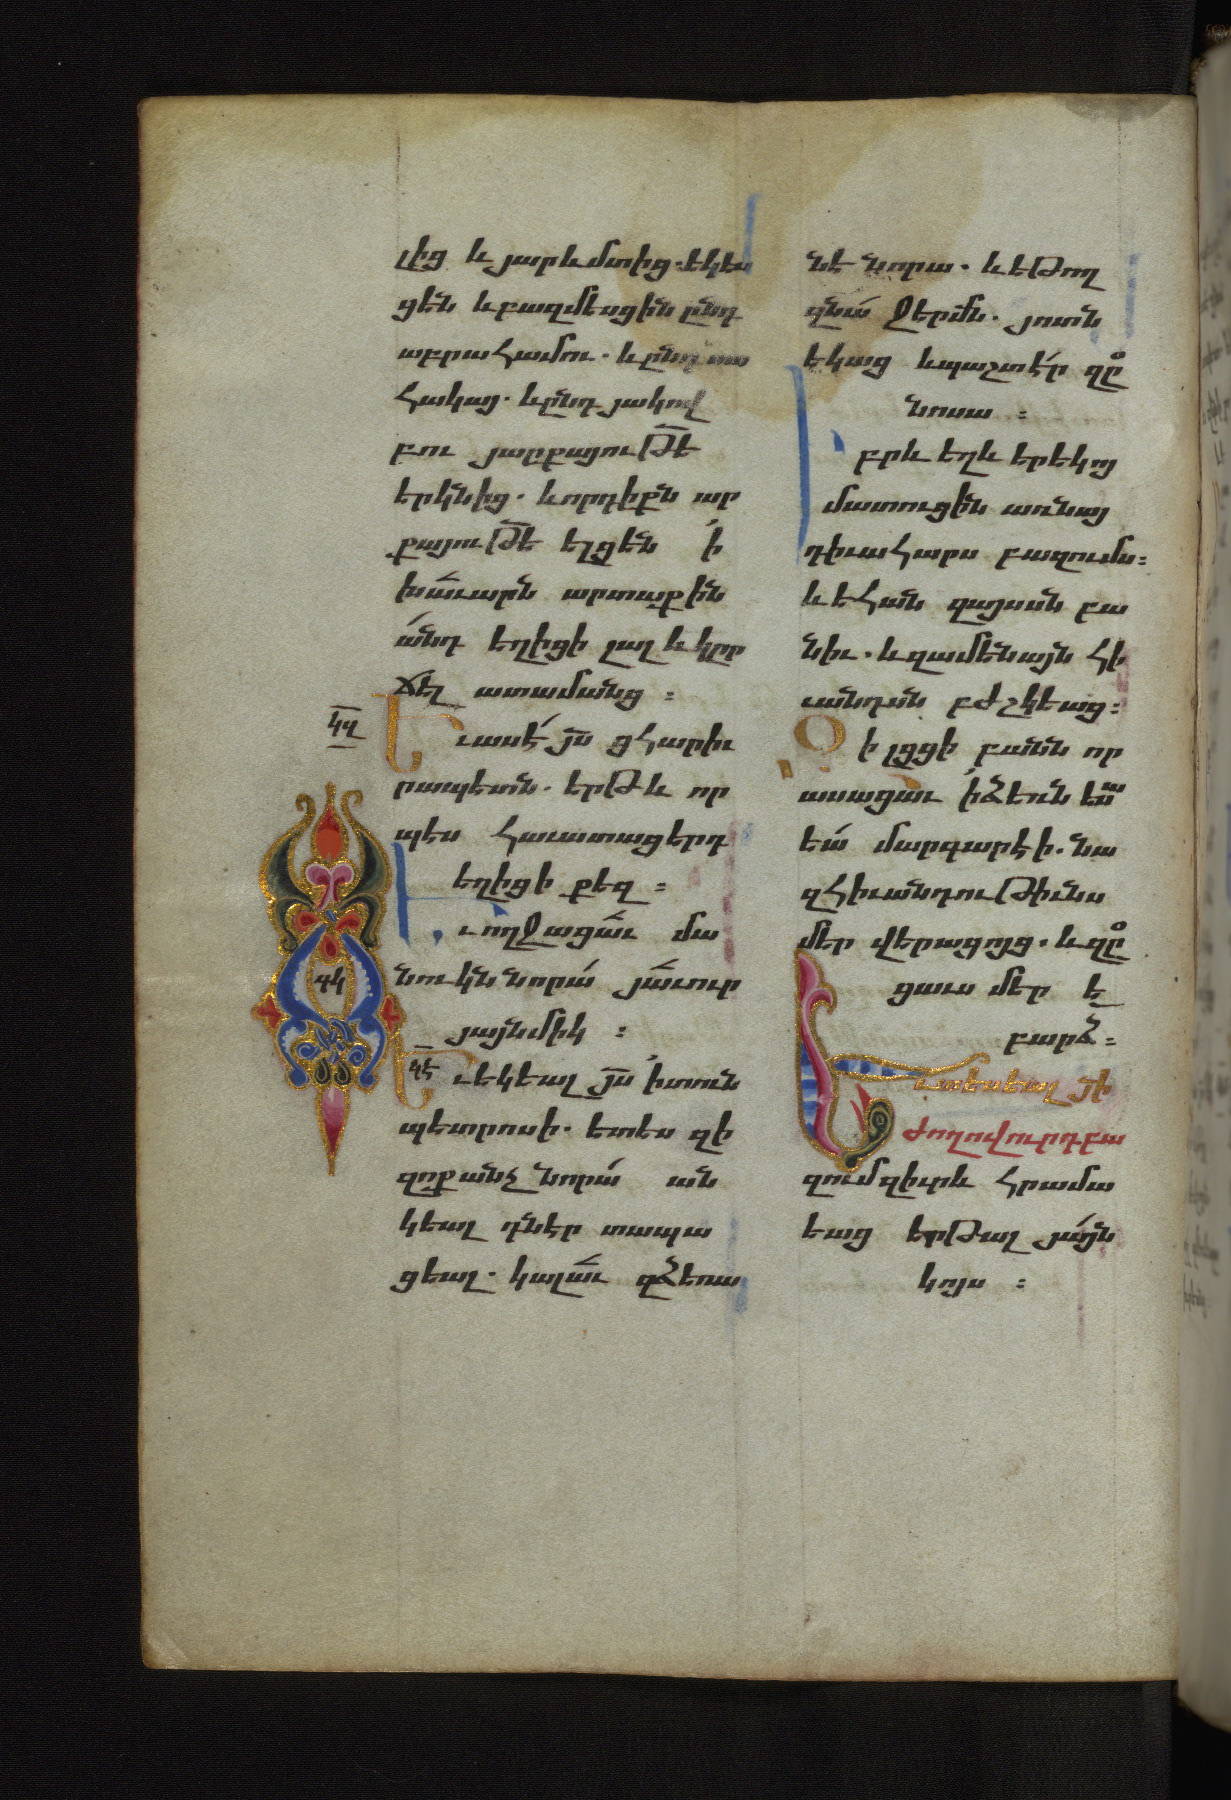 լից և յարևմտից. եկես
ցեն և բազմեսցին ընդ
աբրահամու. և ընդ սա
հակայ. և ընդ յակով
բու յարքայութե
երկնից. և որդիքն ար
քայութե ելցեն ՛ի
խաւարն արտաքին
անդ եղիցի լալ և կըր
ճել ատամանց ։
կզ
Եւ ասէ յս ցհարիւ
րապետն. երթ և որ
պէս հաւատացերդ
եղիցի քեզ ։
Եւ ողջացաւ մա
նուկն նորա յաւուր
յայնմիկ ։
կէ
Եւ եկեալ յս ՛ի տուն
պետրոսի. ետես զի
զոքանչ նորա ան
կեալ դնէր տապա
ցեալ. կալաւ զձեռա
նէ նորա. և եթող
զնա ջերմն. յոտն
եկաց և պաշտէր զը
նոսա ։
Իբրև եղև երեկոյ
մատուցին առ նայ
դիւահարս բազումս ։
և եհան զայսսն բա
նիւ. և զամենայն հի
ւանդսն բժշկեաց ։
Զի լցցի բանն որ
ասացաւ ՛ի ձեռն եսա
եա մարգարէի. նա
զհիւանդութիւնս
մեր վերացոյց. և զը
ցաւս մեր ե
բարձ ։
Եւ տեսեալ յի
ժողովուրդ բա
զում զիւրև հրամա
եաց երթալ յայն
կոյս ։